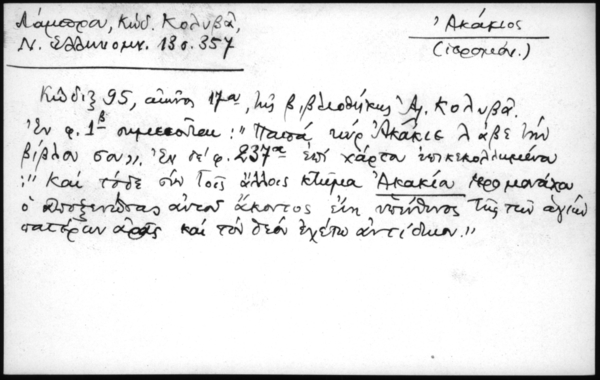 Λάμπρου, Κώδ. Κολυβᾶ,
Ν. Ἑλληνομν. 13ο. 357
Ἀκάκιος
(ἱερομόν.)
Κῶδιξ 95, αἰῶνος 17ου, τῆς βιβλιοθήκης Ἀλ. Κολυβᾶ.
Ἐν φ. 1β σημειοῦται: "Παπᾶ κύρ Ἀκάκιε λάβε τήν
βίβλον σου". Ἐν δέ φ. 237α ἐπί χάρτου ἐπικεκολλημένου
:" Καί τόδε σύν τοῖς ἄλλοις κτῆμα Ἀκακίου ἱερομονάχου
ὁ ἀποξενώσας αὐτοῦ ἄκοντος εἴη ὑπεύθυνος ταῖς τῶν ἁγίων
πατέρων ἀραῖς καί τόν θεόν ἐχέτω ἀντίδικον."